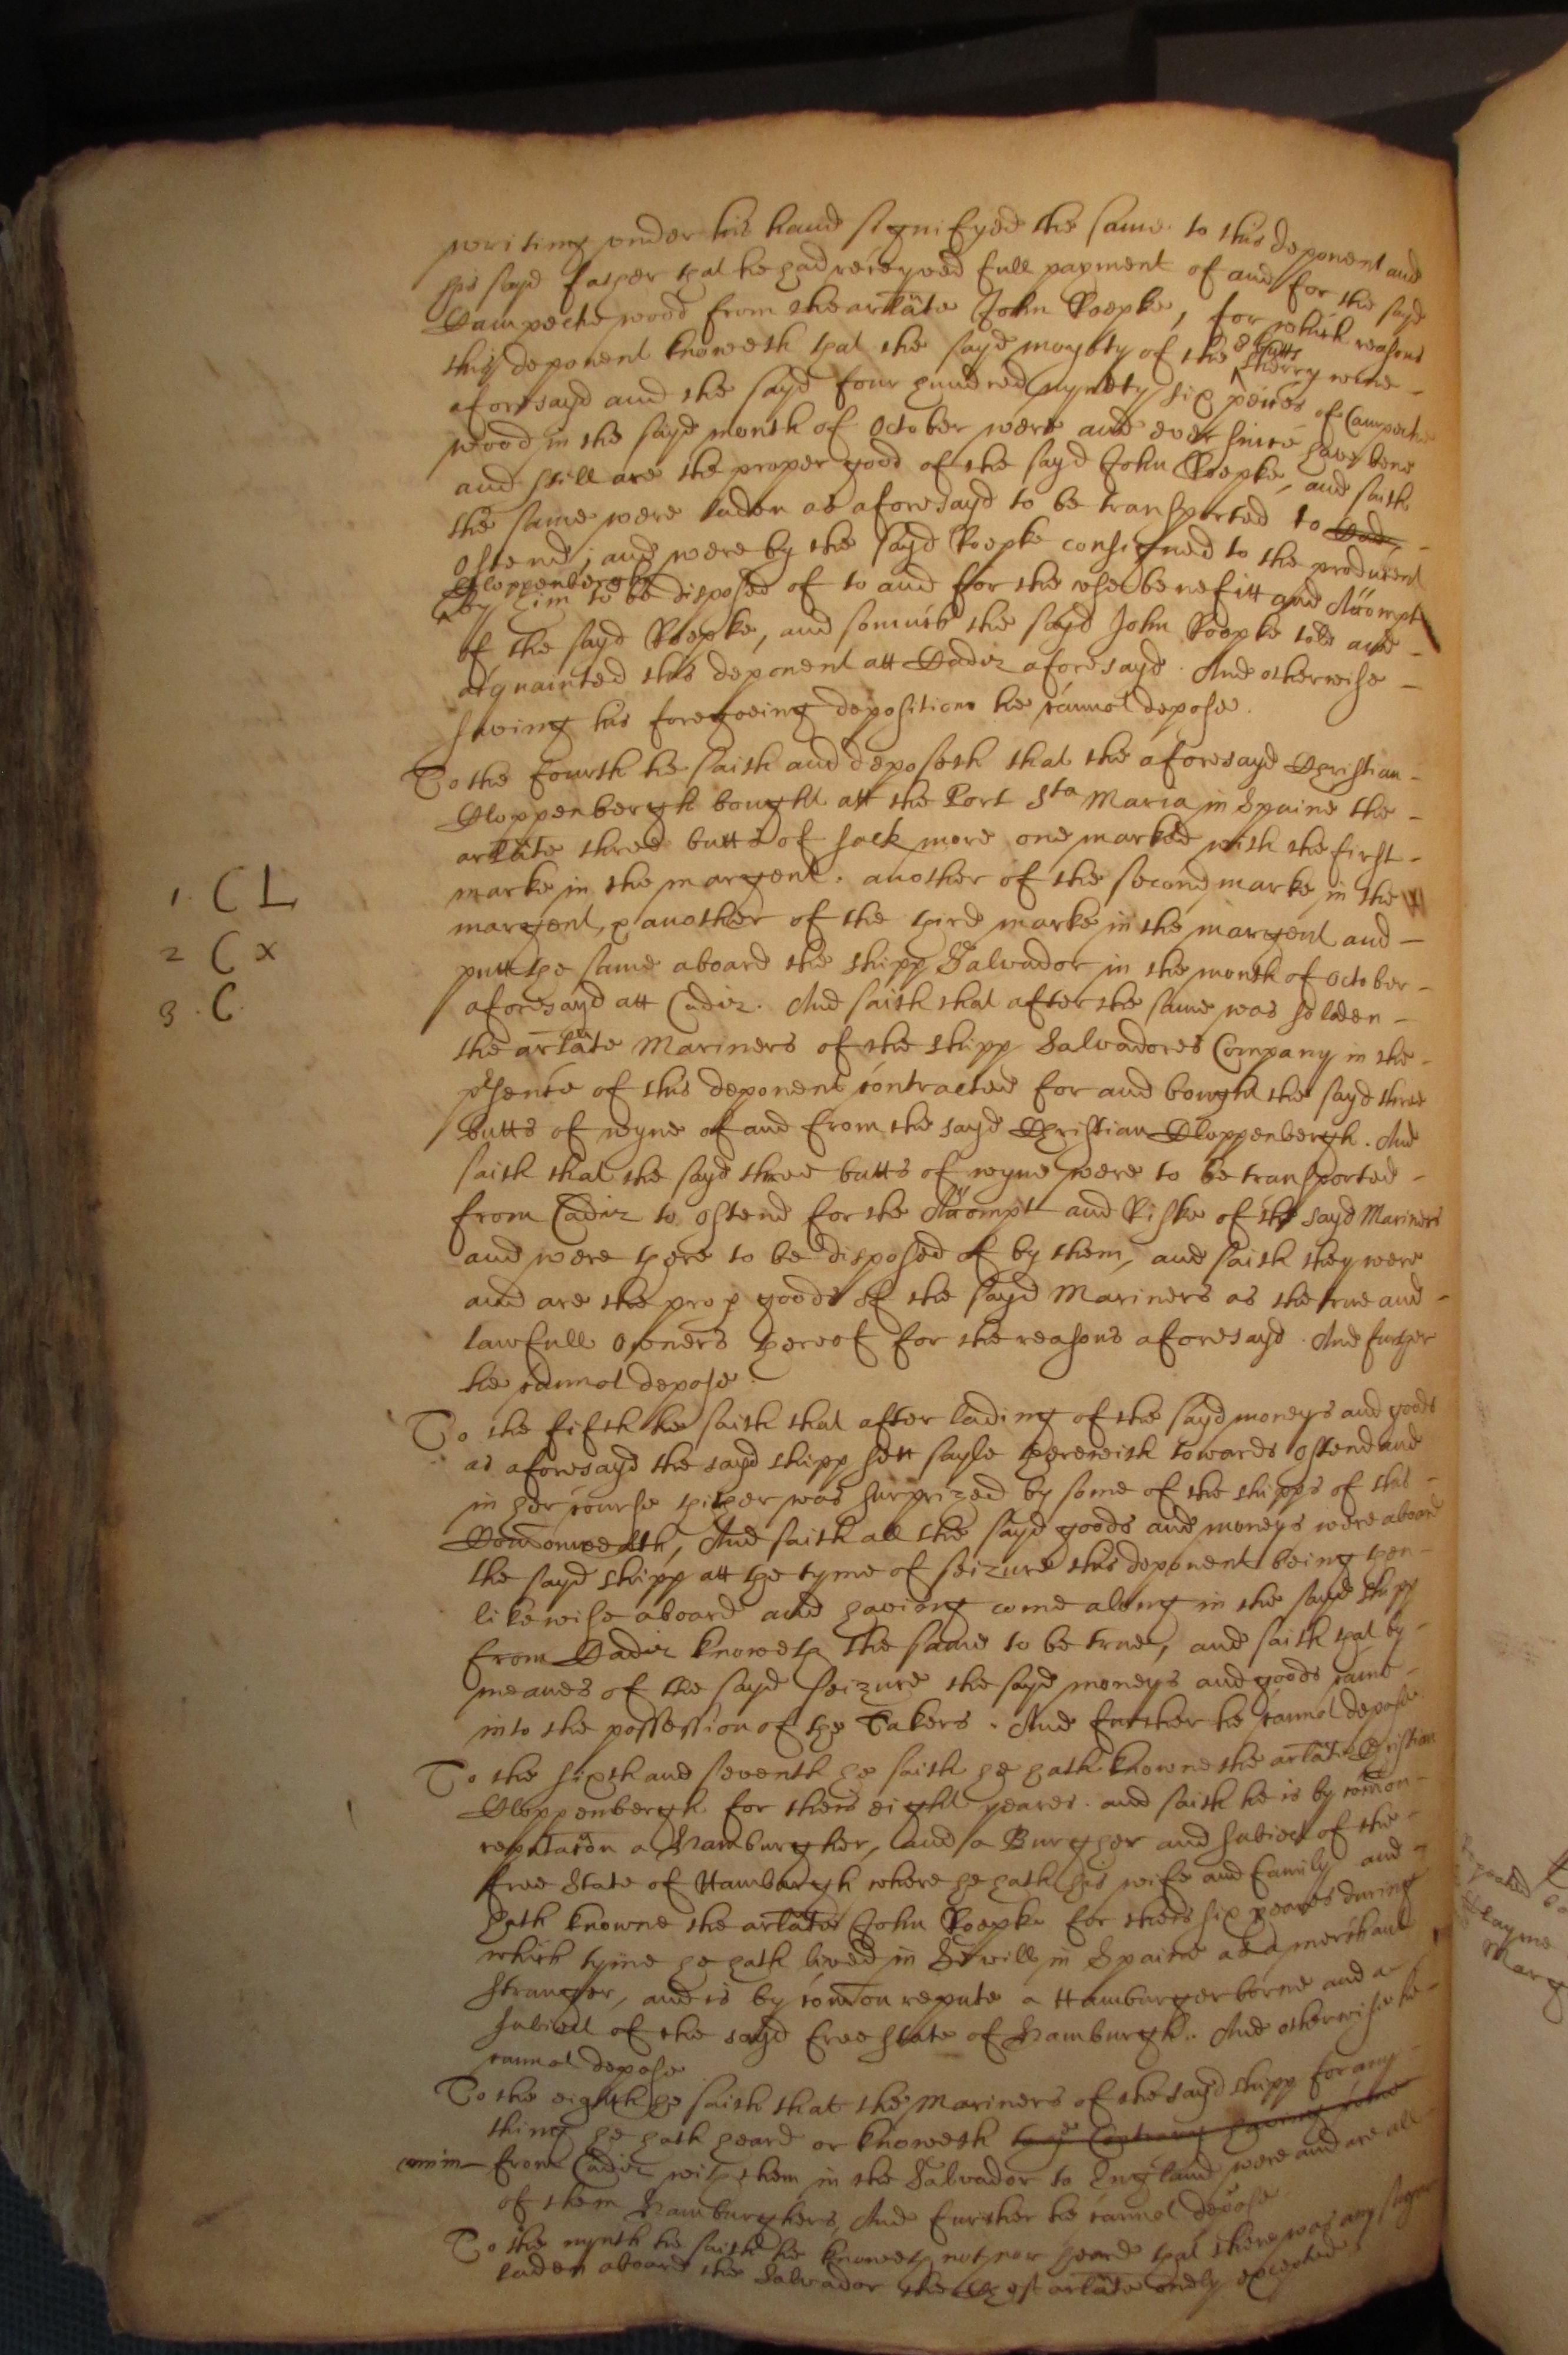 writing under his hand signifyed the same to this deponent and
his sayd father that he had received full payment of and for the sayd
Campeche wood from the arlate John Roepke, for which reasons
this deponent knoweth that the sayd moyety of the 8 butts sherry wine -
aforesayd and the sayd four hundred nynety six peeces of Campeche
wood in the sayd month of October were and ever since have bene
and still are the proper good of the sayd John Roepke, and saith
the same were laden as aforesayd to be transported to Cad,
Ostend; and were by the sayd Roepke consigned to the producent
Cloppenbergh
by him to be disposed of to and for the use benefitt and Accompt
of the sayd Roepke, and somuch the sayd John Roepke told and -
acquainted this deponent att Cadiz aforesayd. And otherwise -
saving his foregoeing deposition he cannot depose.
To the fourth he saith and deposeth that the aforesayd Christian -
Cloppenbergh bought att the Port Sta Maria in Spaine the -
arlate three butts of sack more one marked with the first -
marke in the margent. another of the second marke in the
margent, & another of the third marke in the margent and -
1. C L
2 C x
3. C.
putt the same aboard the shipp Salvador in the month of October -
aforesayd att Cadiz. And saith that after the same was so laden -
the arlate Mariners of the shipp Salvadores Company in the -
psence of this deponent contracted for and bought the sayd three
butts of wyne of and from the sayd Christian Cloppenbergh. And
saith that the sayd three butts of wyne were to be transported -
from Cadiz to Ostend for the Accompt and Riske of the sayd Mariners
and were there to be disposed of by them, and saith they were
and are the prop goods of the sayd Mariners as the true and -
lawfull Owners thereof for the reasons aforesayd. And further
he cannot depose.
To the fifth he saith that after lading of the sayd moneys and goods
as aforesayd the sayd shipp sett sayle therewith towards Ostend and
in her course thither was surprized by some of the shipps of this -
Comonwealth, And saith all the sayd goods and moneys were aboard
the sayd shipp att the tyme of seizure this deponent being then -
likewise aboard and having come along in the sayd shipp
from Cadiz knoweth the same to be true, and saith that by -
meanes of the sayd seizure the sayd moneys and goods came -
into the possession of the Takers. And further he cannot depose
To the sixth and seventh he saith he hath knowne the arlate Christian
Cloppenbergh for theis eight yeares. and saith he is by comon -
reputacon a Hamburgher, and a Burgher and subiect of the -
free State of Hamburgh where he hath his wife and family and -
hath knowne the arlate John Roepke for theis six yeares during
which tyme he hath lived in Sevill in Spaine as a merchant
stranger, and is by comon repute a Hamburger borne and a -
subiect of the sayd free state of Hamburgh. And otherwise he -
cannot depose
To the eighth he saith that the Mariners of the sayd shipp for any -
thing he hath heard or knoweth to ye Contrary having come
from Cadiz with them in the Salvador to England were and are all
of them Hamburghers, And further he cannot depose
To the nynth he saith he knoweth not nor heard that there was any
laden aboard the Salvador the Chest arlate onely excepted